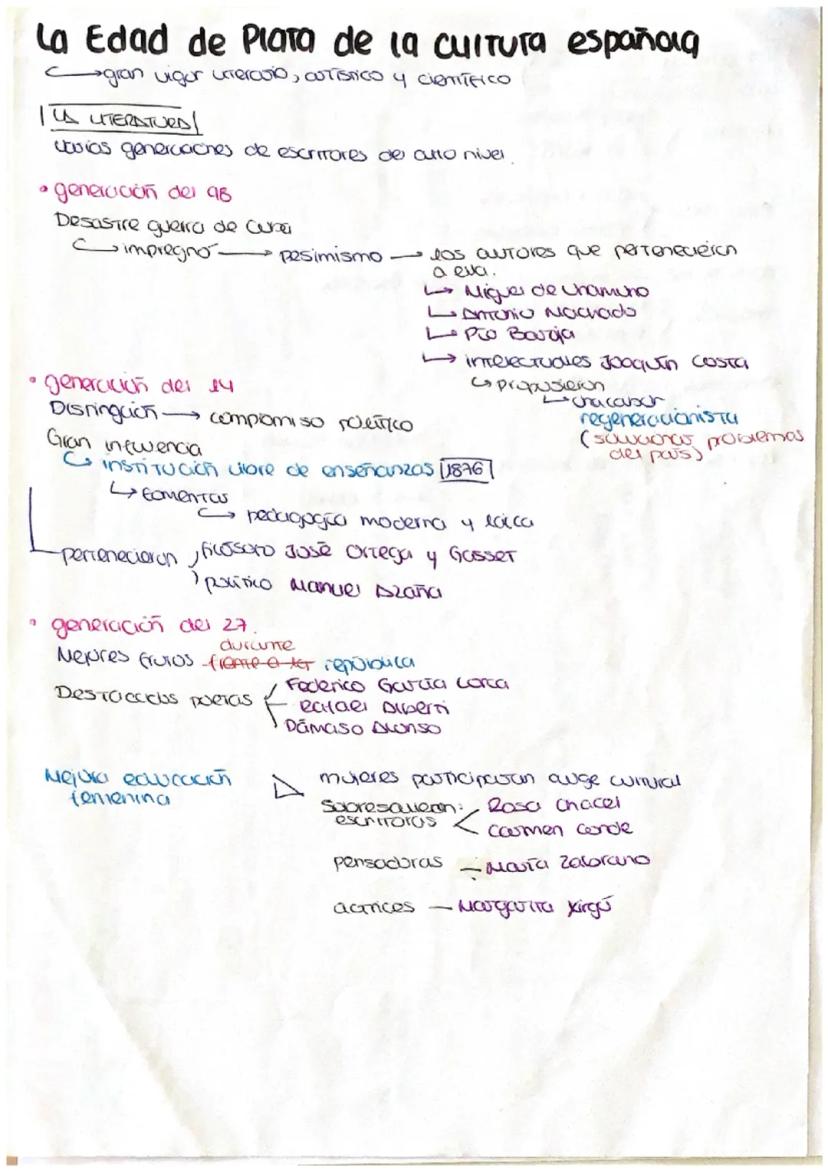 La Edad de Plata de la cultura española
gran vigor literario, artístico y científico
LA LITERATURA
varias generaciones de escritores de alto nivel.
• generación del 98
Desastre guerra de Cuba
impregnó → pesimismo → los autores que pertenecieron
a ella.
↳ Miguel de Unamuno
↳ Antonio Machado
↳ Pío Baroja
↳ intelectuales Joaquín Costa
↳ propusieron
regeneracionista
(solucionar problemas
del país)
• generación del 14
Distinguión → compromiso político
Gran influencia
↳ institución libre de enseñanzas 1876
↳ fomentas
↳ pedagogía moderna y laica
pertenecieron filósofo José Ortega y Gasset
político Manuel Azaña
• generación del 27.
durante
Mejores frutos frente a la república
Destacados poetas Federico García Lorca
Rafael Alberti
Dámaso Alonso
Mejora educación
femenina
mujeres participaron auge cultural
Sobresalieron:
escritoras < Rosa Chacel
Carmen Conde
pensadoras - María Zabrano
actrices - Margarita Xirgú